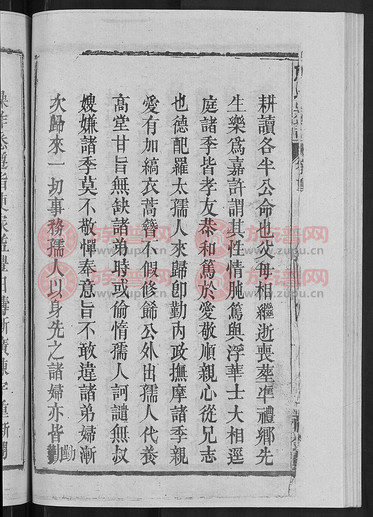 耕讀各半公命也父母相繼逝喪塟凖禮鄉先
生樂爲嘉許謂其性情施篤與浮華士大相逕
庭諸季皆孝友恭和篤於愛敬順親心從兄志
也德配羅太孺人來歸卽勤內政撫摩諸季親
愛有加縞衣蒿簪不假修飾公外出孺人代養
高堂甘旨無缺諸弟時或偷惰孺人訶譴無叔
嫂嫌諸季莫不敬憚奉意旨不敢違諸弟婦漸
次歸來一切事務孺人以身先之諸婦亦皆勤
勤
族譜网
www.zupu.cn